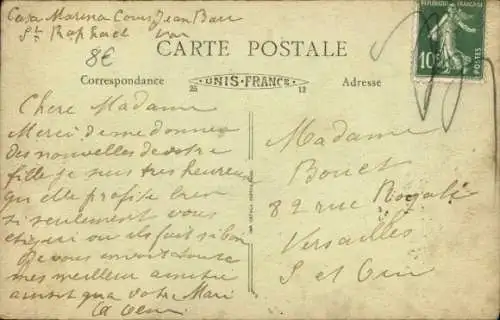 Casa Marina Cours Jean Bart
St Raphael Var
8€
CARTE POSTALE
RÉPUBLIQUE FRANÇAISE
10
POSTES
Correspondance
UNIS-FRANCE
25 12
Adresse
Chere Madame
Merci de me donner
des nouvelles de votre
fille je suis tres heureux
qu elle profite bien
si seulement vous
etiez ici ou il fait si bon
Je vous envoi toute
mes meilleur amitie
ainsi qua votre Mari
Madame
Bouet
82 rue Royale
Versailles
S et Oise